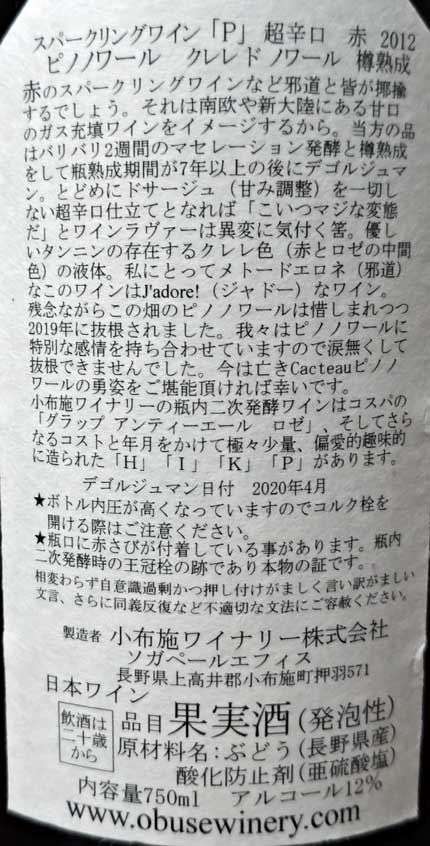 スパークリングワイン「P」超辛口　赤 2012
ピノノワール　クレレド ノワール　樽熟成
赤のスパークリングワインなど邪道と皆が揶揄
するでしょう。それは南欧や新大陸にある甘口
のガス充填ワインをイメージするから。当方の品
はバリバリ2週間のマセレーション発酵と樽熟成
をして瓶熟成期間が7年以上の後にデゴルジュマ
ン。とどめにドサージュ（甘み調整）を一切し
ない超辛口仕立てとなれば「こいつマジな変態
だ」とワインラヴァーは異変に気付く筈。優し
いタンニンの存在するクレレ色（赤とロゼの中間
色）の液体。私にとってメトードエロネ（邪道）
なこのワインはJ'adore!（ジャドー）なワイン。
残念ながらこの畑のピノノワールは惜しまれつつ
2019年に抜根されました。我々はピノノワールに
特別な感情を持ち合わせていますので涙無くして
抜根できませんでした。今は亡きCacteauピノノ
ワールの勇姿をご堪能頂ければ幸いです。
小布施ワイナリーの瓶内二次発酵ワインはコスパの
「グラップ アンティーエール　ロゼ」、そしてさら
なるコストと年月をかけて極々少量、偏愛的趣味的
に造られた「H」「I」「K」「P」があります。
デゴルジュマン日付　2020年4月
★ボトル内圧が高くなっていますのでコルク栓を
開ける際はご注意ください。
★瓶口に赤さびが付着している事があります。瓶内
二次発酵時の王冠栓の跡であり本物の証です。
相変わらず自意識過剰かつ押し付けがましく言い訳がましい
文言、さらに同義反復など不適切な文法にご容赦ください。
製造者　小布施ワイナリー株式会社
ソガペールエフィス
長野県上高井郡小布施町押羽571
日本ワイン
飲酒は
二十歳
から
品目 果実酒（発泡性）
原材料名：ぶどう（長野県産）
酸化防止剤（亜硫酸塩）
内容量750ml　アルコール12%
www.obusewinery.com